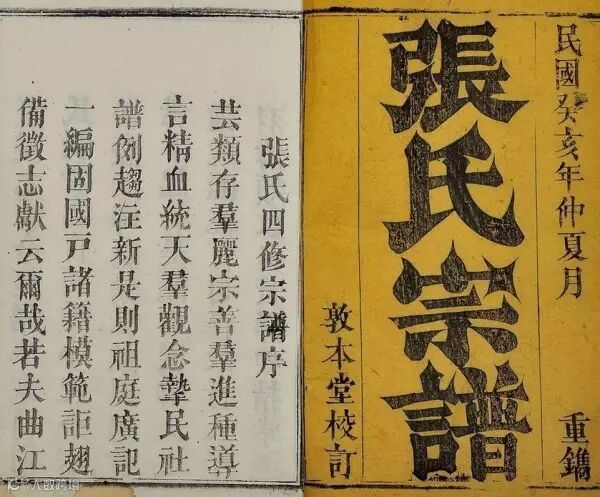 民國癸亥年仲夏月
重鐫
張氏宗譜
敦本堂校訂
張氏四修宗譜序
芸類存羣麗宗善羣進種導
言精血統天羣觀念摯民社
譜例趨注新是則祖庭廣記
一編固國尹諸籍模範詎趐
備徵志獻云爾哉若夫曲江
大數跨境